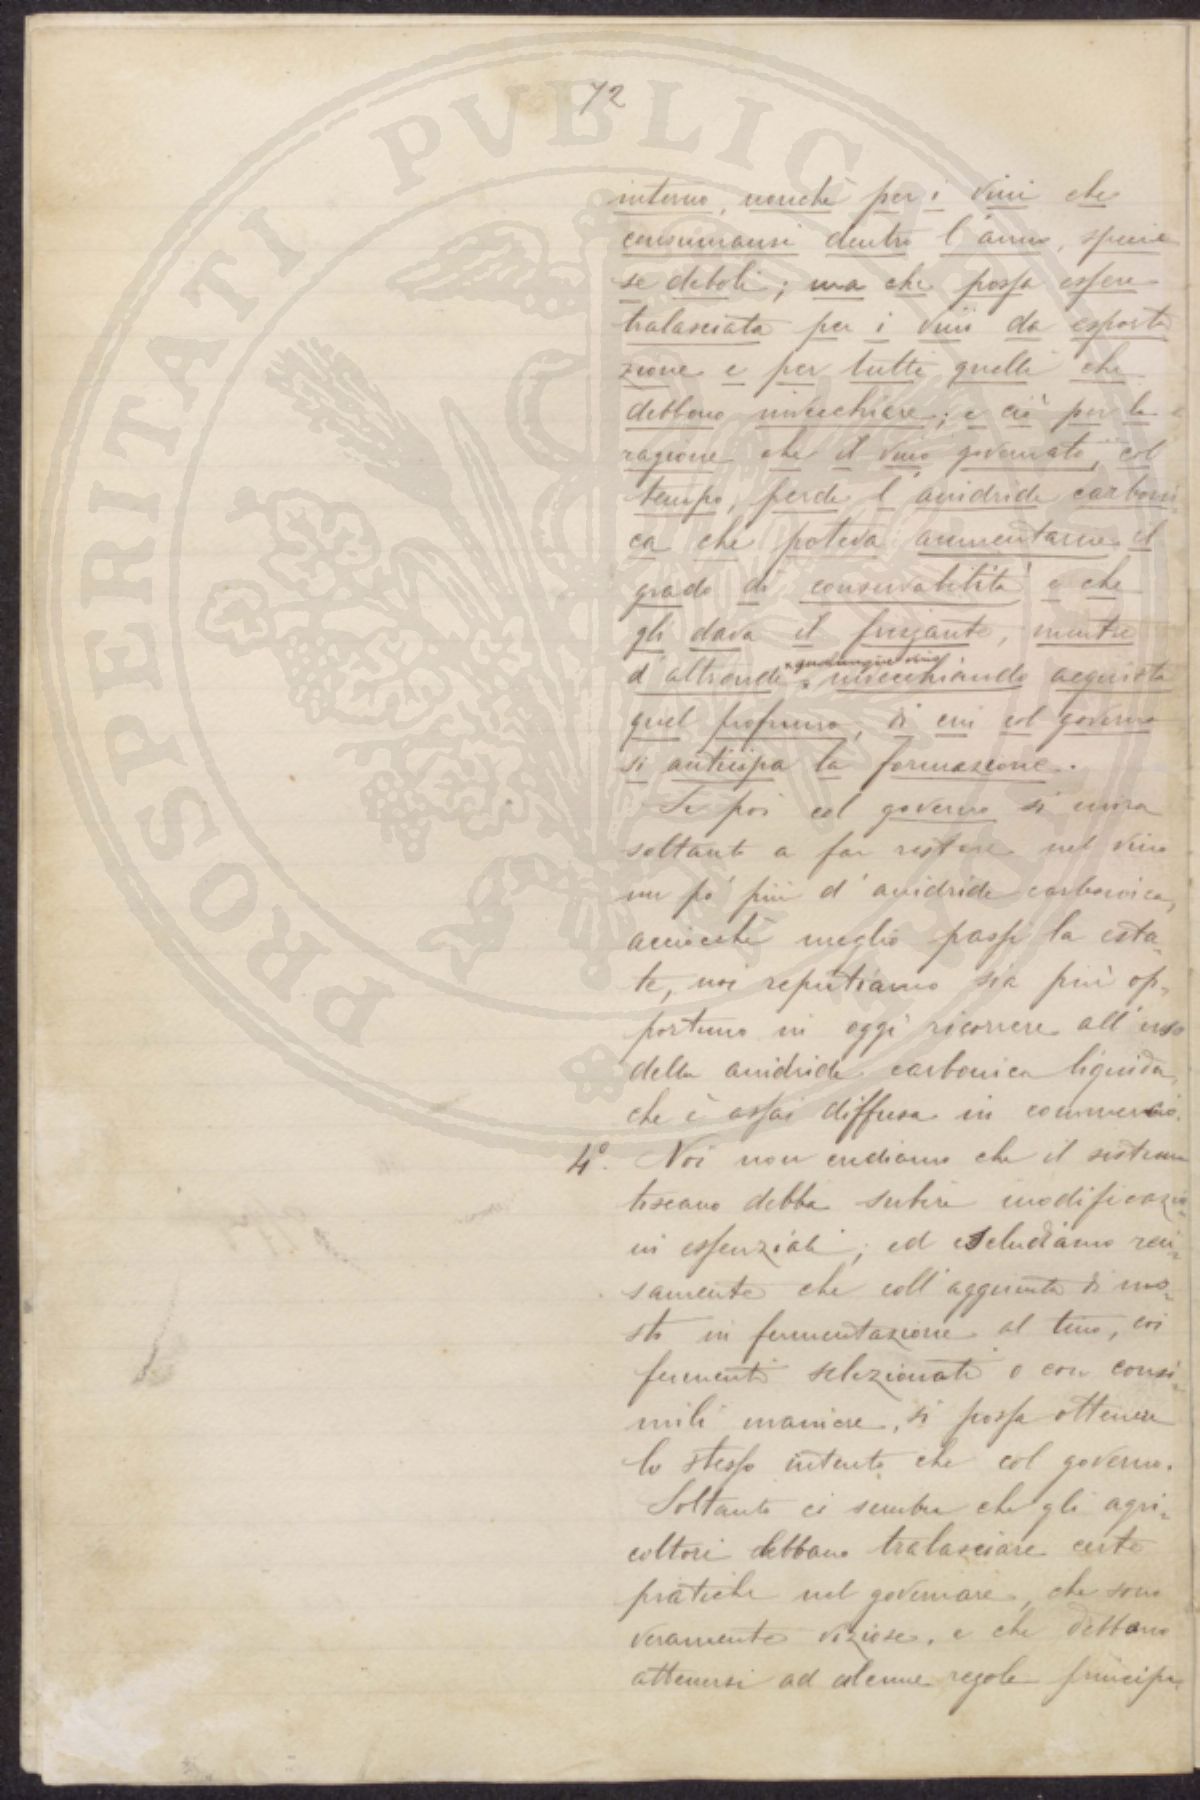 72
PROSPERITATI PVBLIC
interno, nonchè per i vini che
consumansi dentro l'anno, specie
se deboli; ma che possa essere
tralasciata per i vini da esporta
zione e per tutti quelli che
debbono invecchiare; e ciò per la
ragione che il vino governato, col
tempo, perde l'anidride carboni-
ca che poteva aumentarne il
grado di conservabilità e che
gli dava il frizzante, mentre
x qualunque vino
d'altronde x invecchiando acquista
quel profumo, di cui col governo
si anticipa la formazione.
Se poi col governo si mira
soltanto a far restare nel vino
un pò più d'anidride carbonica,
acciocchè meglio passi la esta-
te, noi reputiamo sia più op-
portuno in oggi ricorrere all'uso
della anidride carbonica liquida,
che è assai diffusa in commercio.
4°. Noi non crediamo che il sistema
toscano debba subire modificazio-
ni essenziali; ed escludiamo reci-
samente che coll'aggiunta di mo-
sto in fermentazione al tino, coi
fermenti selezionati o con consi-
mili maniere, si possa ottenere
lo stesso intento che col governo.
Soltanto ci sembra che gli agri-
coltori debbano tralasciare certe
pratiche nel governare, che sono
veramente viziose, e che debbano
attenersi ad alcune regole principa-